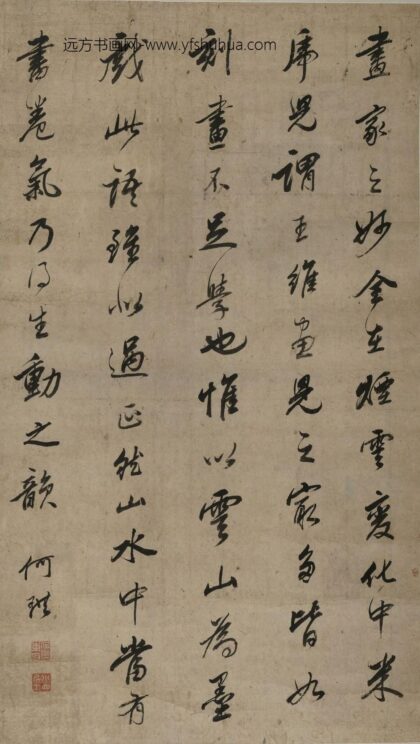 远方书画网-www.yfshuhua.com
畫家之妙全在煙雲變化中米
虎児謂王維畫見之最多皆如
刻畫不足學也惟以雲山為墨
戲此語雖似過正然山水中當有
書卷氣乃得生動之韻
何